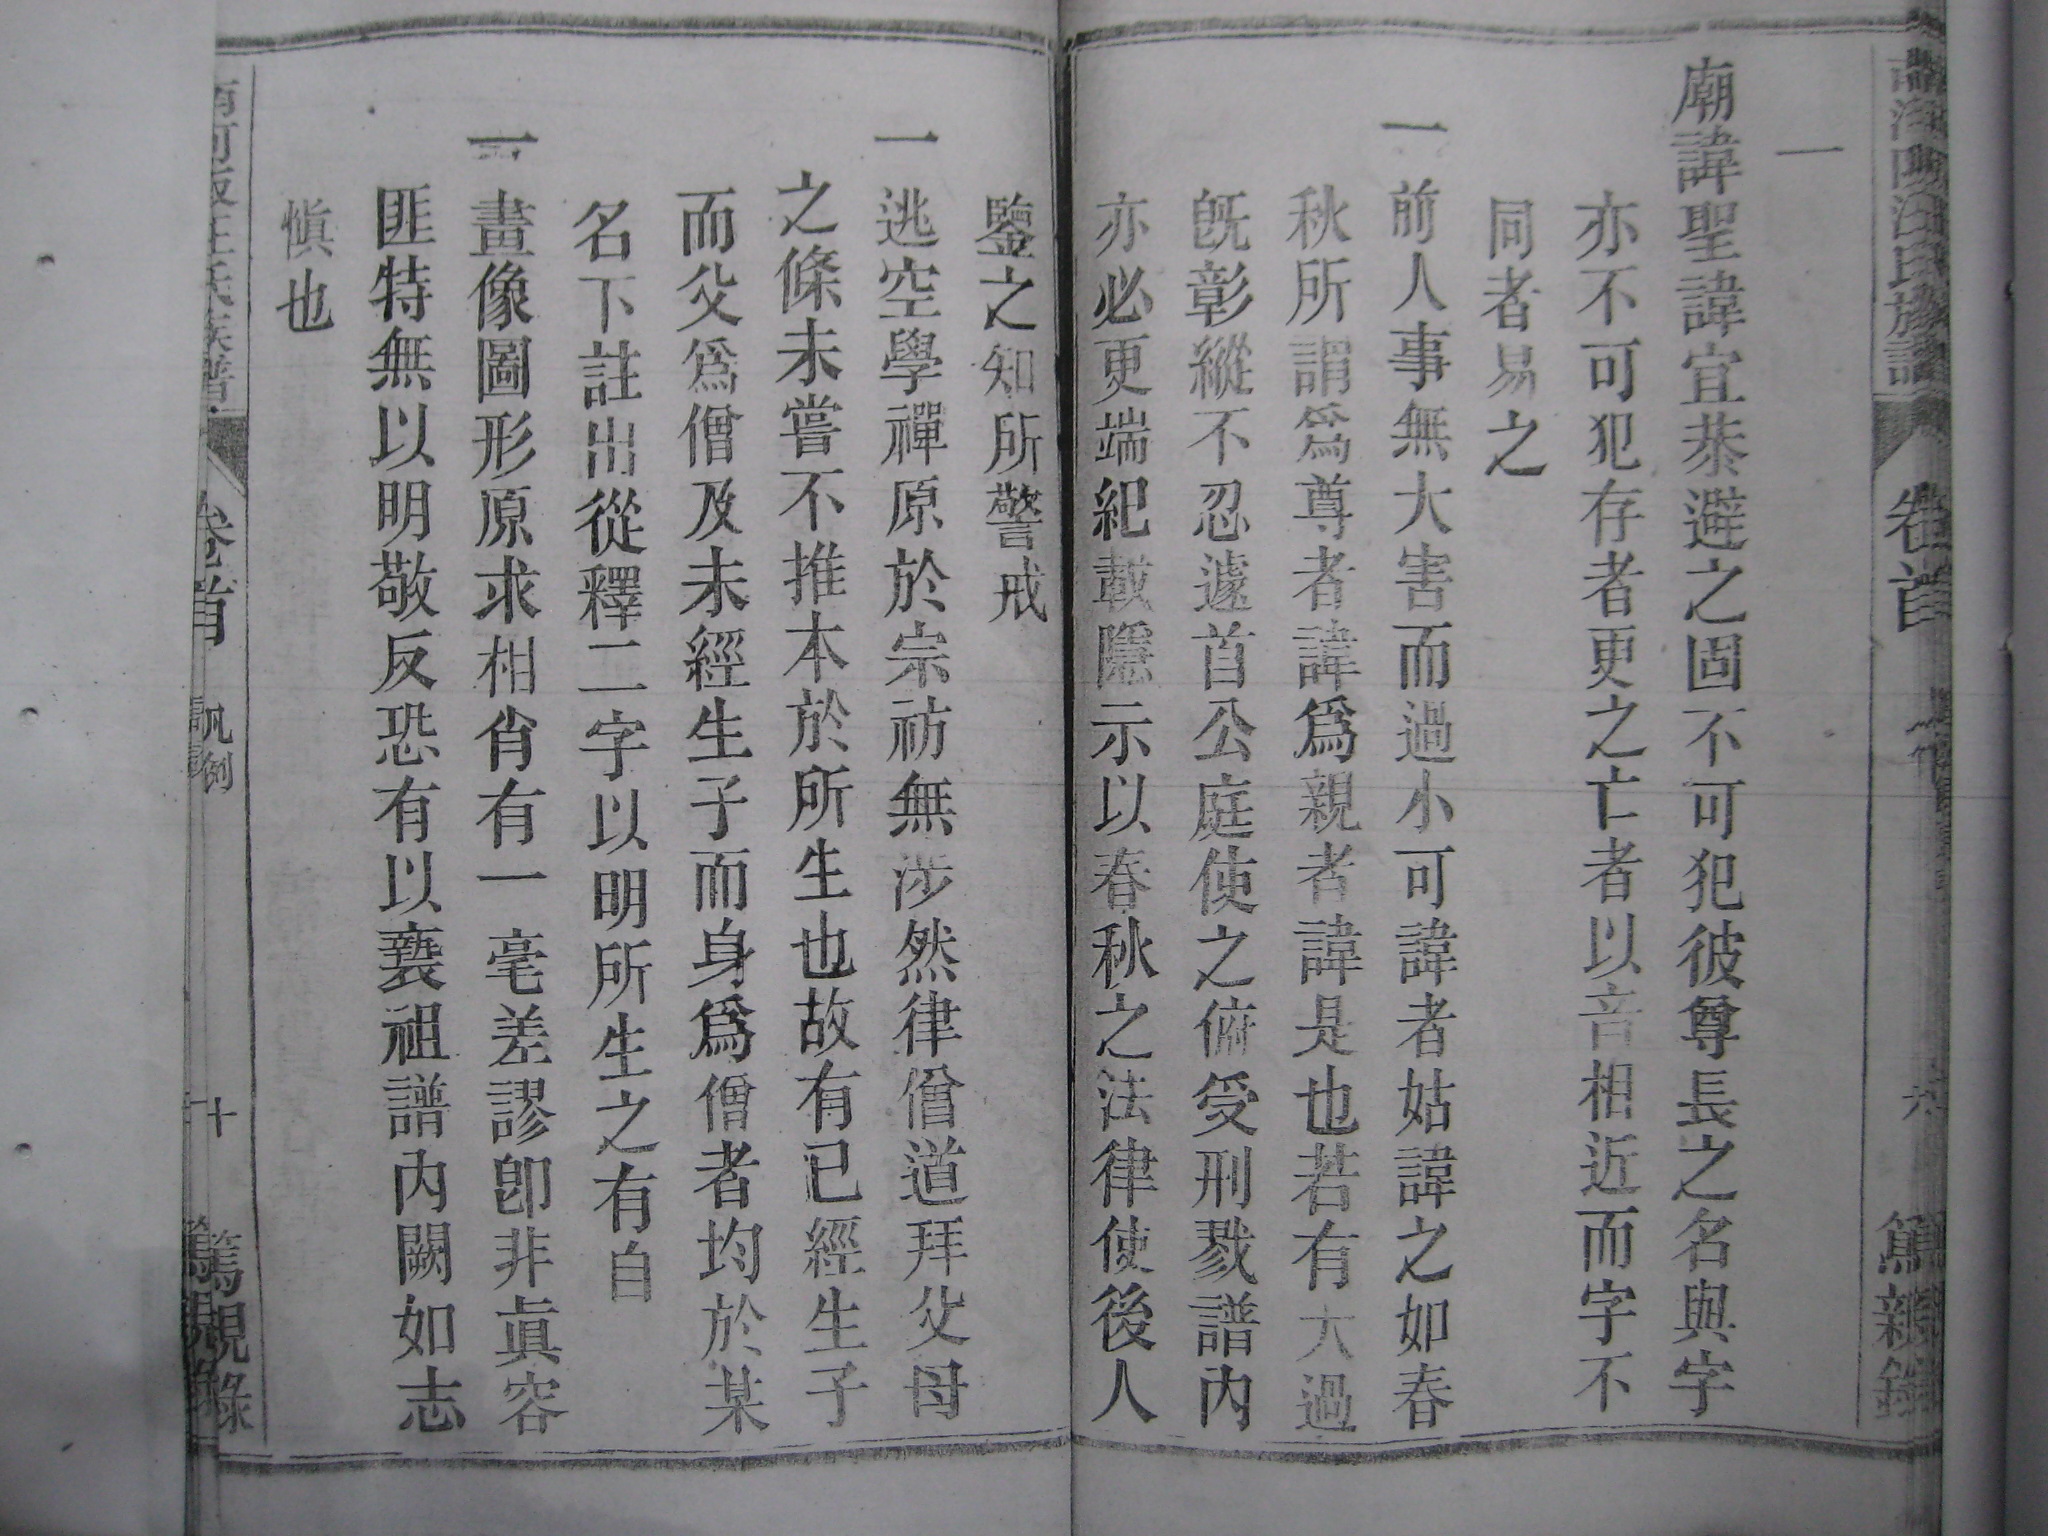 卷首
六
篤親錄
一
廟諱聖諱宜恭避之固不可犯彼尊長之名與字
亦不可犯存者更之亡者以音相近而字不
同者易之
一前人事無大害而過小可諱者姑諱之如春
秋所謂爲尊者諱爲親者諱是也若有大過
旣彰縱不忍遽首公庭使之俯受刑戮譜內
亦必更端紀載隱示以春秋之法律使後人
鑒之知所警戒
一逃空學禪原於宗祊無涉然律僧道拜父母
之條未嘗不推本於所生也故有已經生子
而父爲僧及未經生子而身爲僧者均於某
名下註出從釋二字以明所生之有自
一畫像圖形原求相肖有一毫差謬卽非眞容
匪特無以明敬反恐有以䙝祖譜內闕如志
愼也
卷首
凡例
十
篤親錄